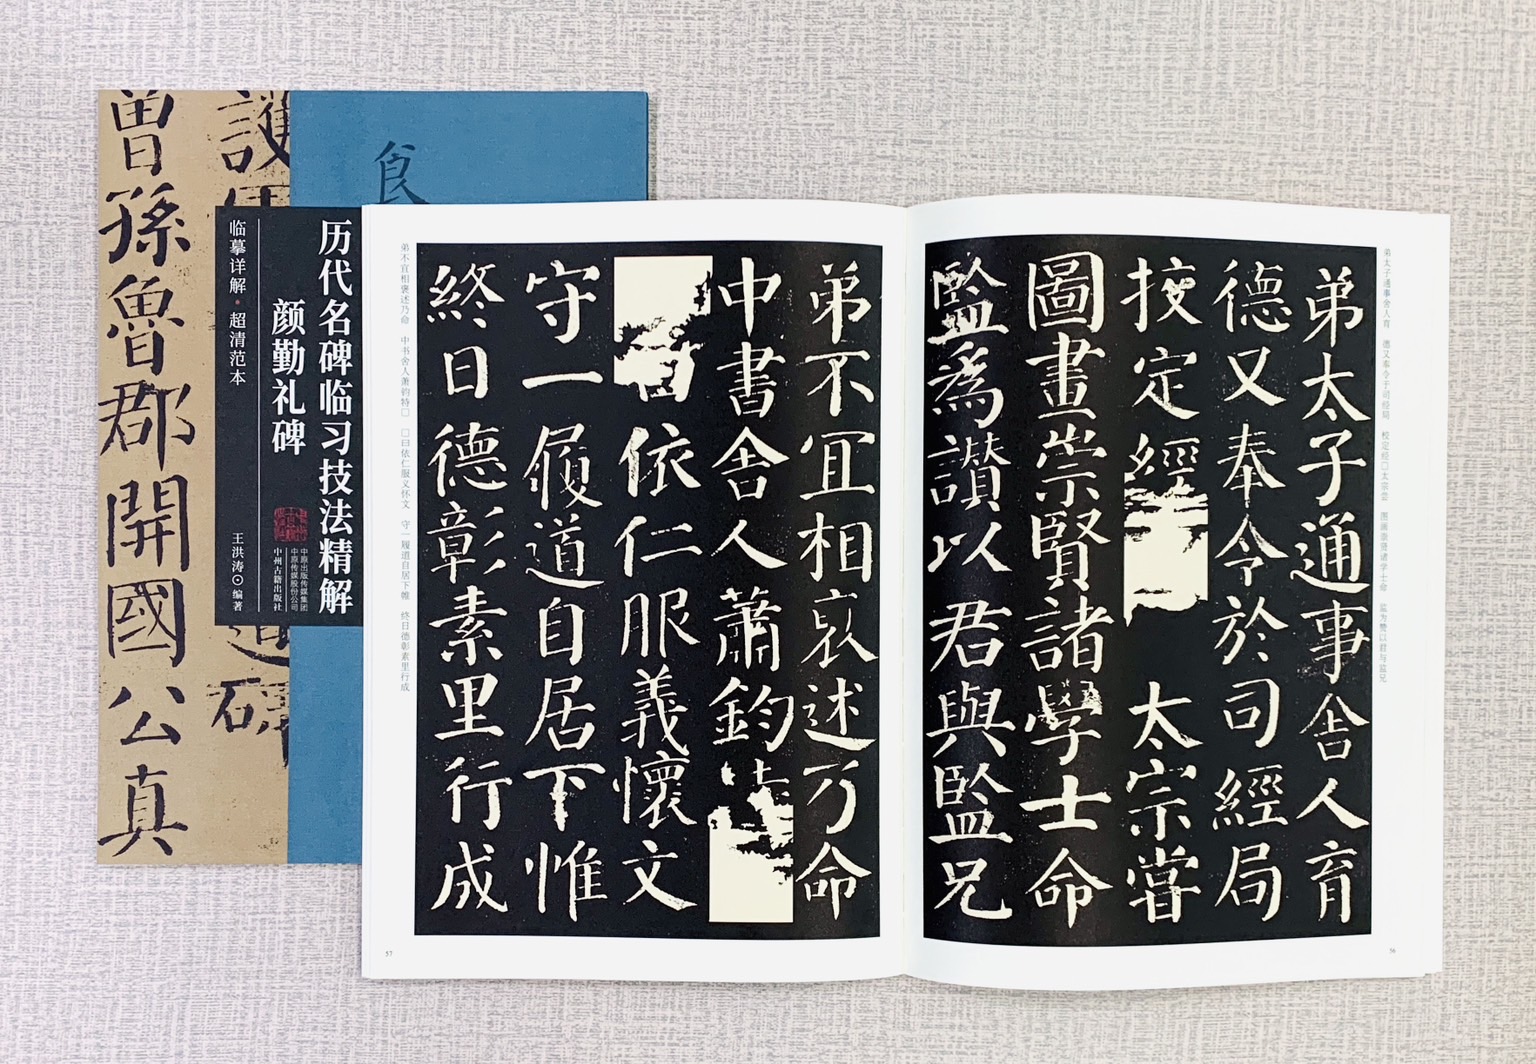 曾孫魯郡開國公真
護
碑
食
历代名碑临习技法精解
颜勤礼碑
临摹详解·超清范本
王洪涛⊙编著
中原出版传媒集团
中原传媒股份公司
中州古籍出版社
弟太子通事舍人育
德又奉令於司經局
挍定經
太宗嘗
圖畫崇賢諸學士命
監為讚以君與監兄
弟不宜相褒述乃命
中書舍人蕭鈞特
曰依仁服義懷文
守一履道自居下帷
終日德彰素里行成
弟太子通事舍人育 德又奉令于司经局 校定经□太宗尝 图画崇贤诸学士命 监为赞以君与监兄
56
弟不宜相褒述乃命 中书舍人萧钧特□ □曰依仁服义怀文 守一履道自居下帷 终日德彰素里行成
57